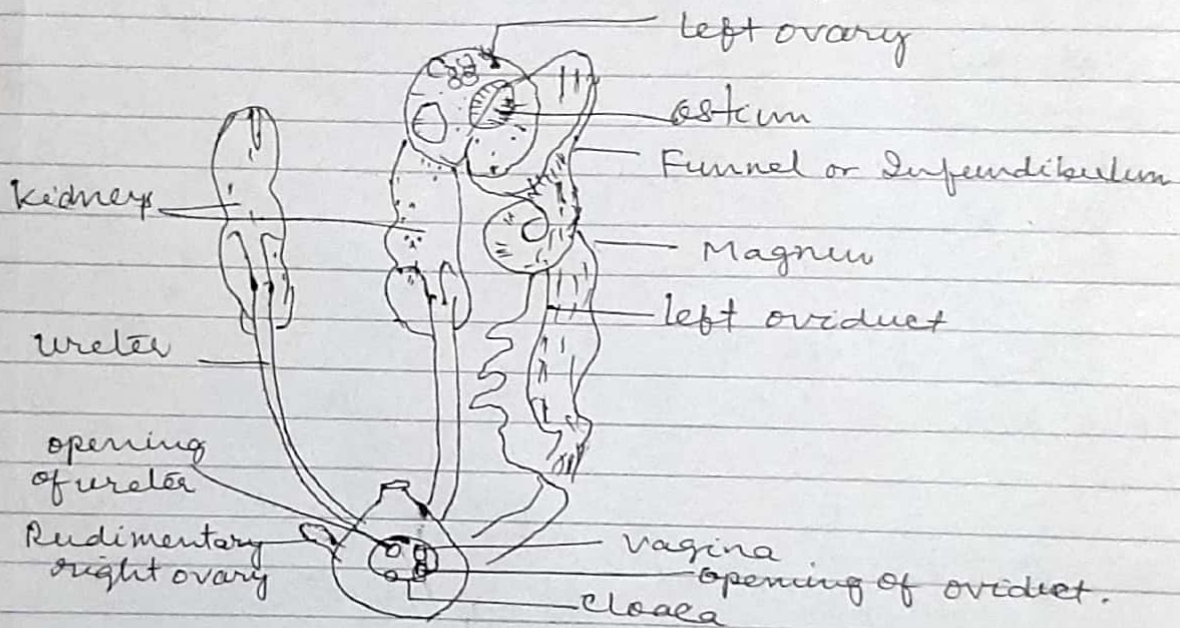 Left ovary
ostium
Funnel or Infundibulum
Kidneys
Magnum
left oviduct
ureter
opening
of ureter
Rudimentary
right ovary
Vagina
opening of oviduct.
Cloaca